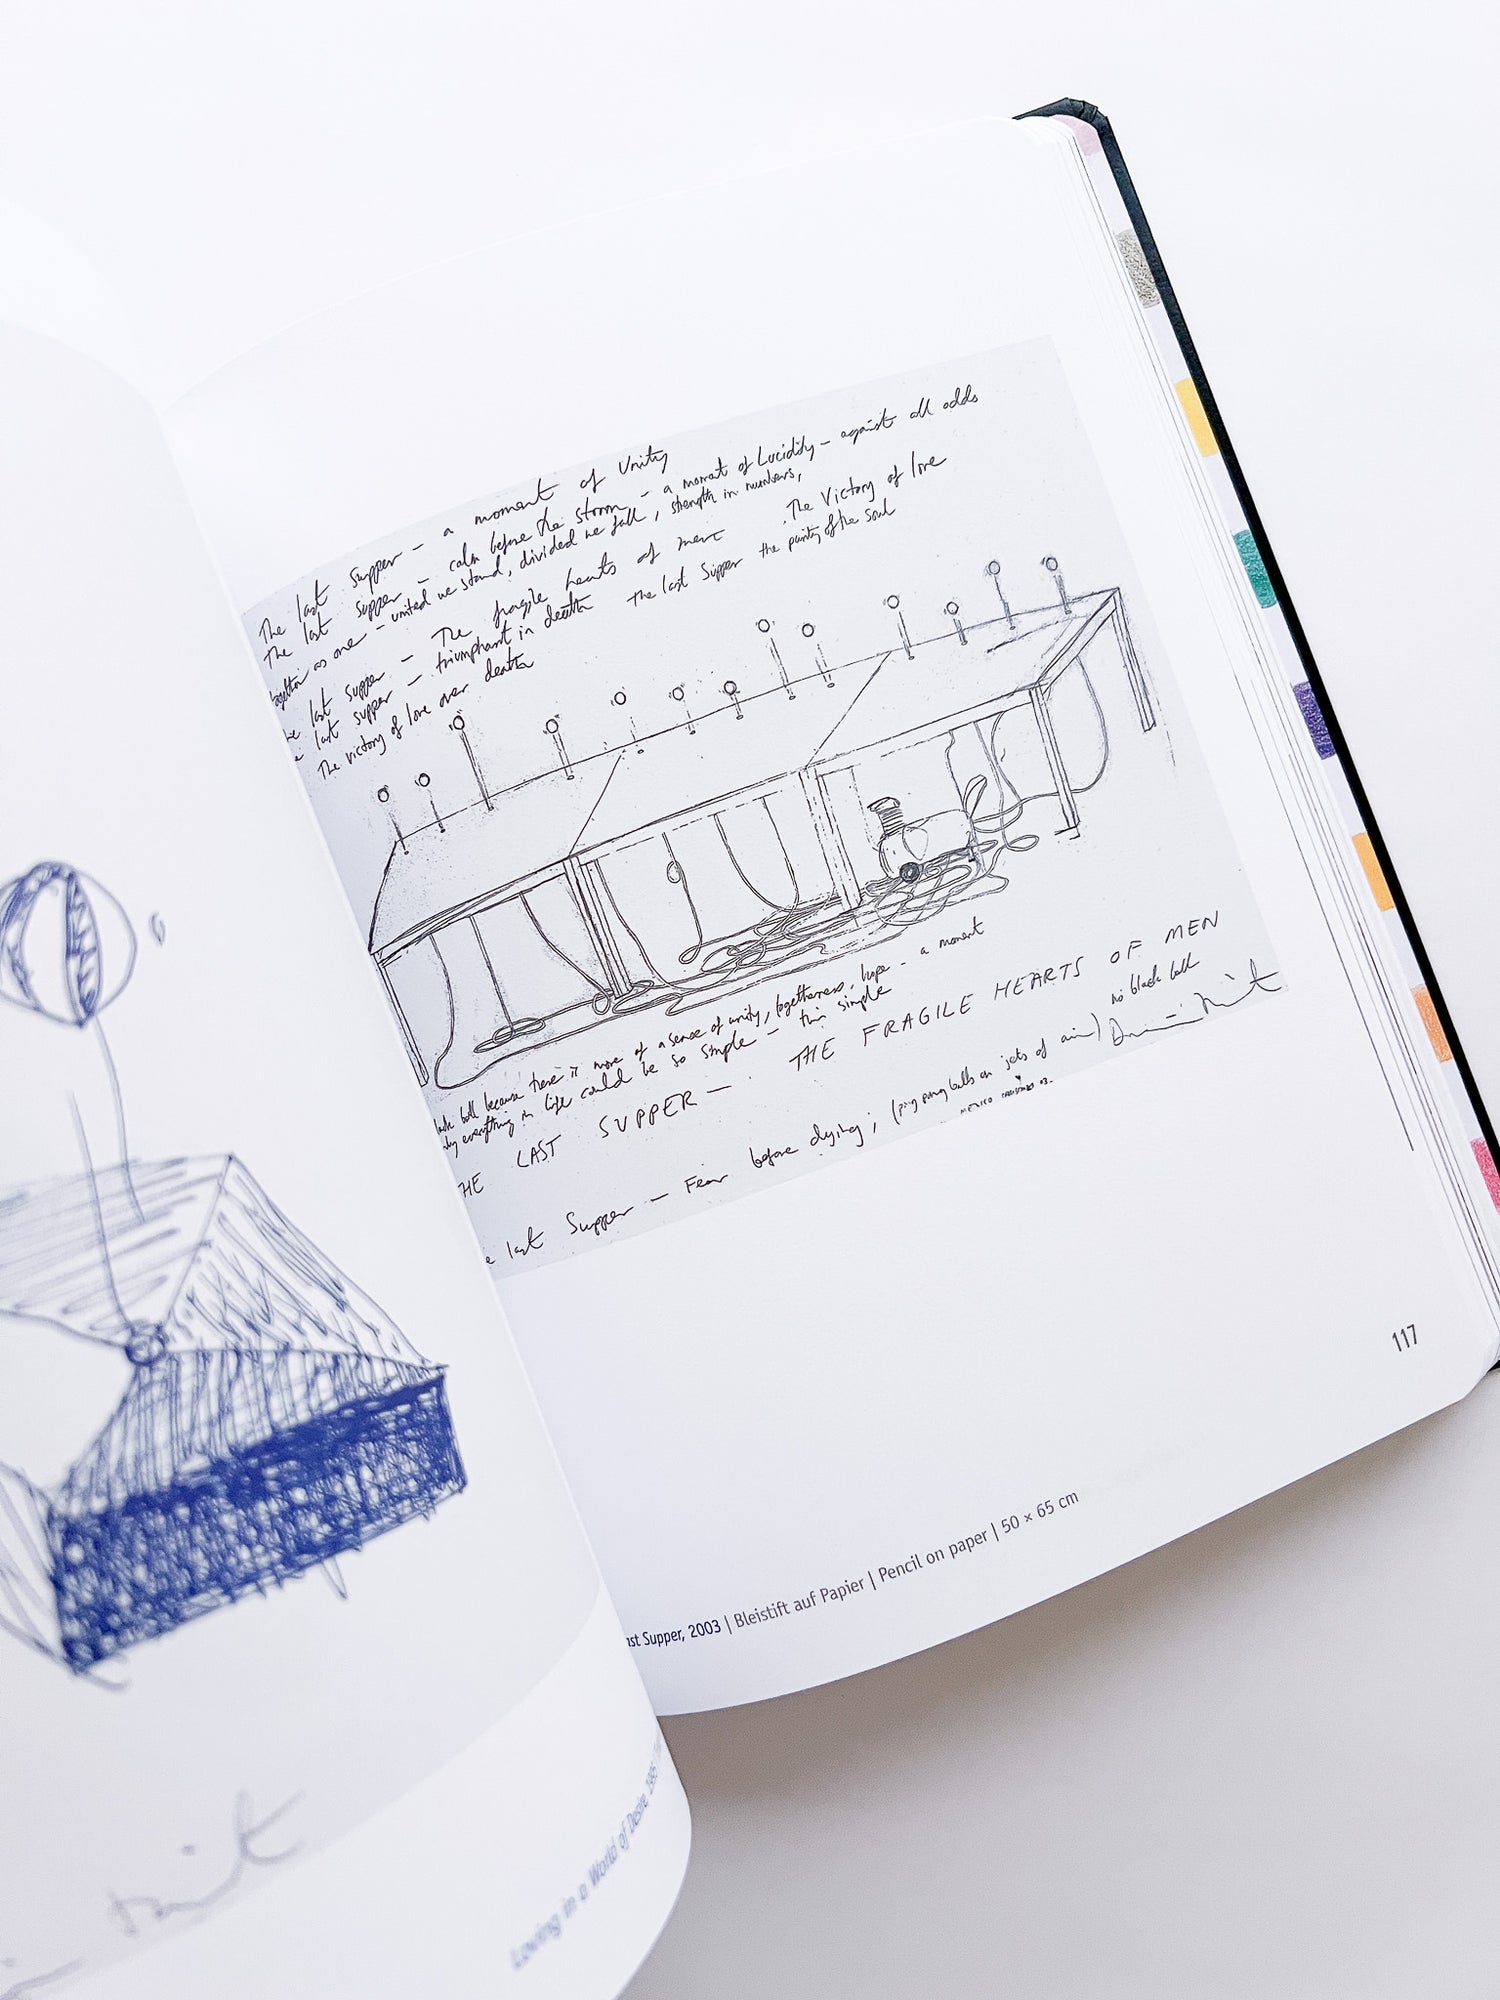 The last Supper – a moment of Unity
The last Supper – calm before the storm – a moment of Lucidity – against all odds
together as one – united we stand, divided we fall, strength in numbers,
last Supper – The fragile hearts of men
The Victory of love
last supper – triumphant in death the last Supper the purity of the soul
The victory of love over death
ball because there is more of a sense of unity, togetherness, hope – a moment
everything in life could be so simple – this simple
THE LAST SUPPER – THE FRAGILE HEARTS OF MEN
no black ball
last Supper – Fear before dying; (ping pong balls on jets of air)
MEXICO CHRISTMAS 03.
117
ast Supper, 2003 | Bleistift auf Papier | Pencil on paper | 50 × 65 cm
in a World of Desire,